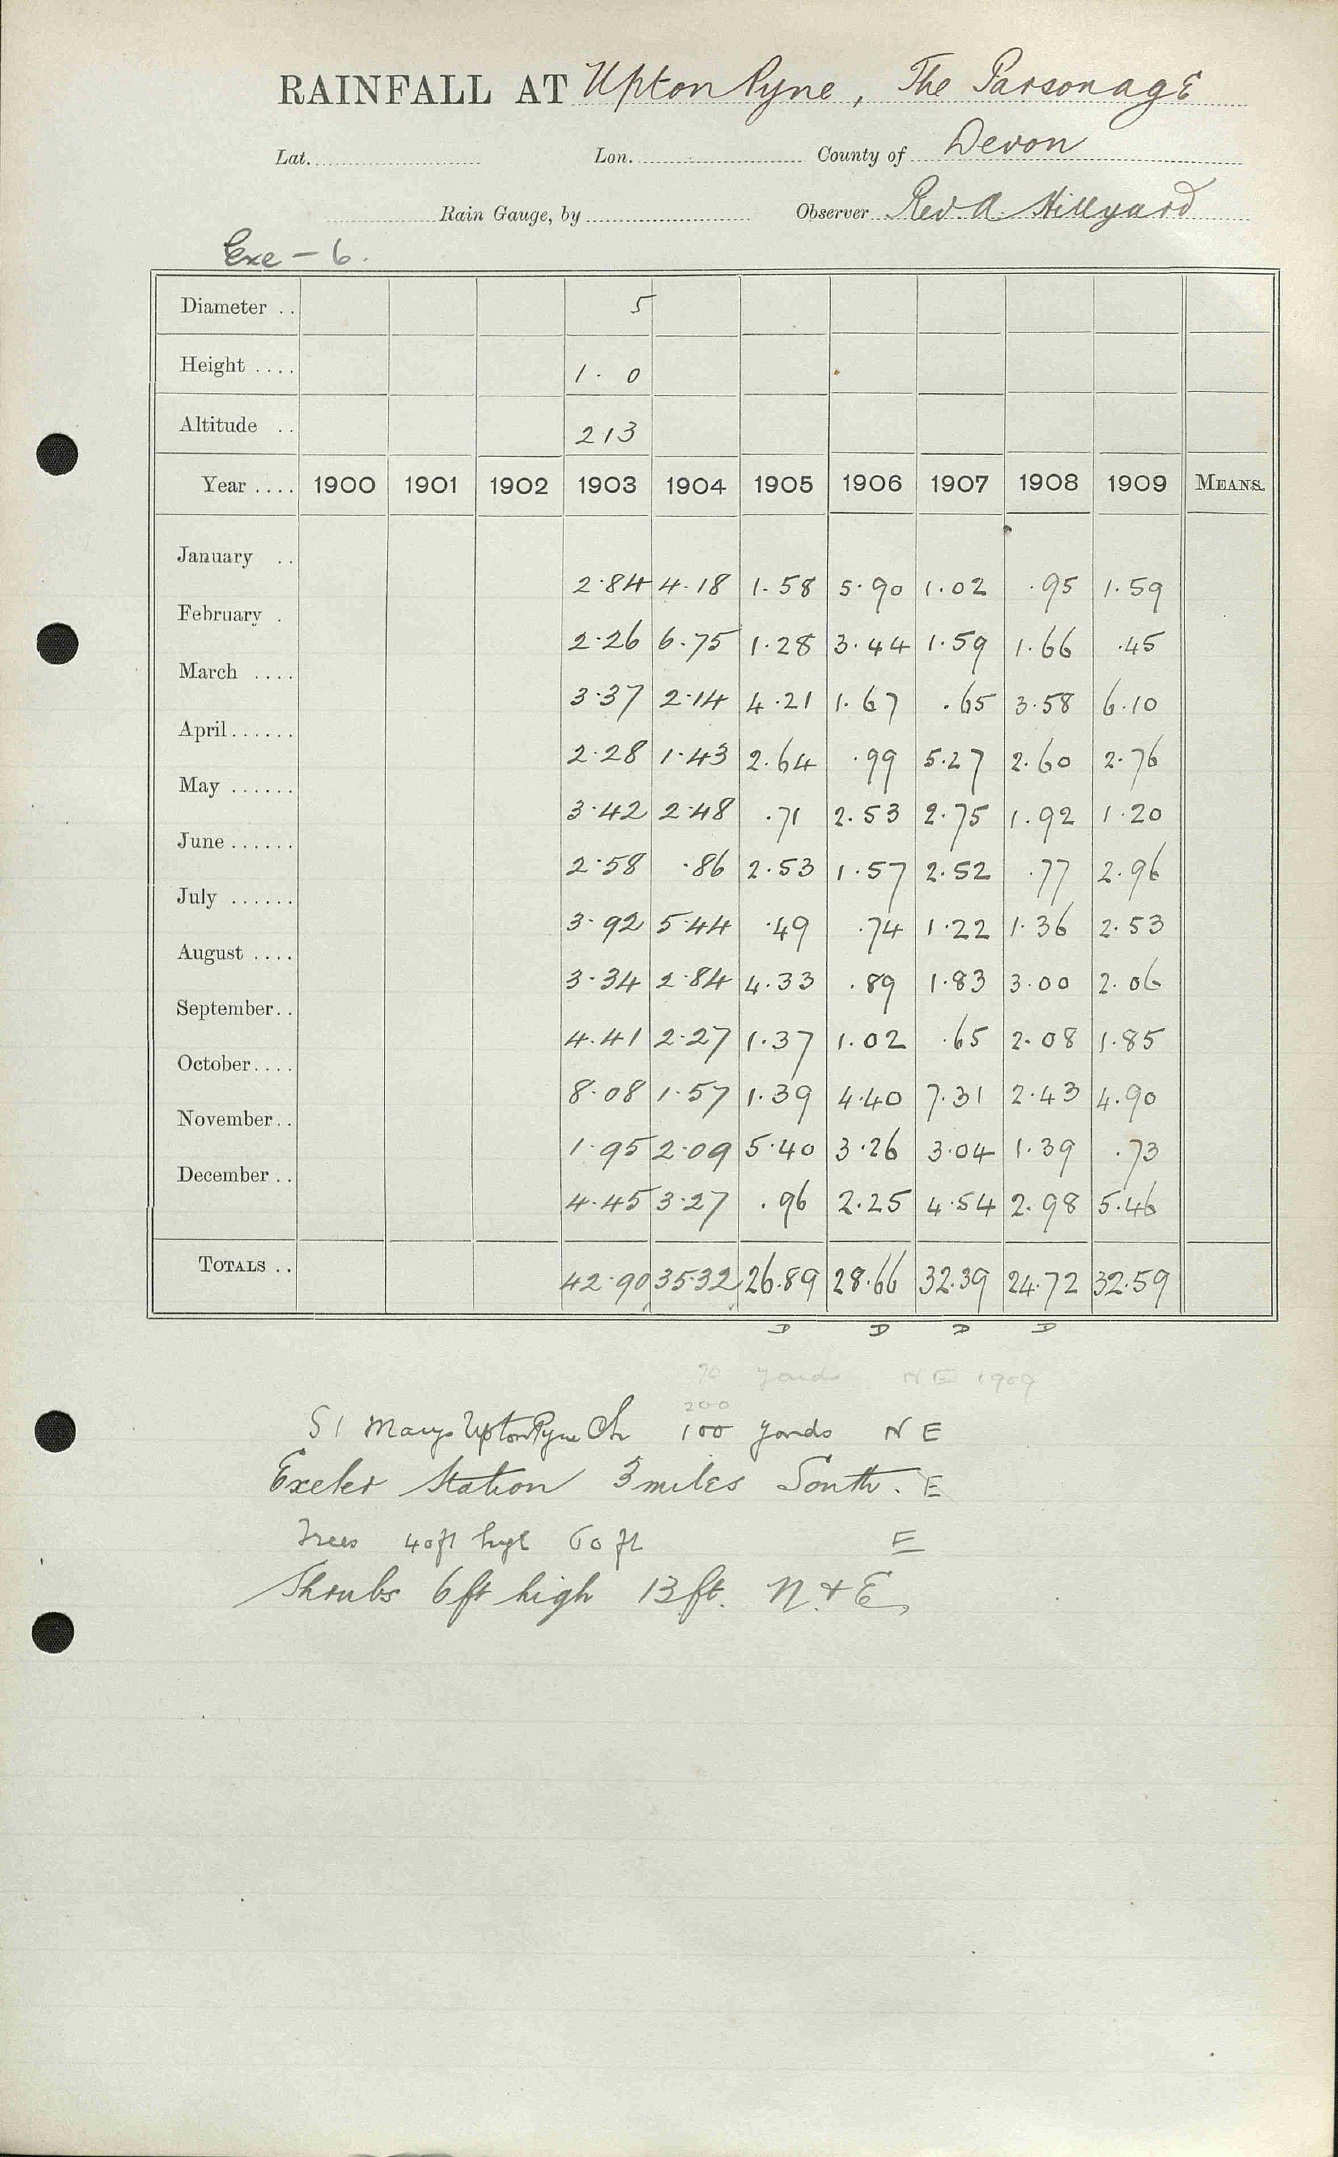 RAINFALL AT Upton Pyne, The Parsonage
Lat. Lon. County of Devon
Rain Gauge, by Observer Rev. A. Hillyard
Exe - 6.
Diameter .. 5
Height .... 1 . 0
Altitude .. 213
Year .... 1900 1901 1902 1903 1904 1905 1906 1907 1908 1909 MEANS.
January .. 2.84 4.18 1.58 5.90 1.02 .95 1.59
February . 2.26 6.75 1.28 3.44 1.59 1.66 .45
March .... 3.37 2.14 4.21 1.67 .65 3.58 6.10
April...... 2.28 1.43 2.64 .99 5.27 2.60 2.76
May ...... 3.42 2.48 .71 2.53 2.75 1.92 1.20
June...... 2.58 .86 2.53 1.57 2.52 .77 2.96
July ...... 3.92 5.44 .49 .74 1.22 1.36 2.53
August .... 3.34 2.84 4.33 .89 1.83 3.00 2.06
September.. 4.41 2.27 1.37 1.02 .65 2.08 1.85
October.... 8.08 1.57 1.39 4.40 7.31 2.43 4.90
November.. 1.95 2.09 5.40 3.26 3.04 1.39 .73
December .. 4.45 3.27 .96 2.25 4.54 2.98 5.46
TOTALS .. 42.90 35.32 26.89 28.66 32.39 24.72 32.59
D D D D
70 yards NE 1909
200
St Marys Upton Pyne Ch 100 yards N E
Exeter Station 3 miles South. E
Trees 40ft high 60 ft E
Shrubs 6ft high 13ft. N. & E.